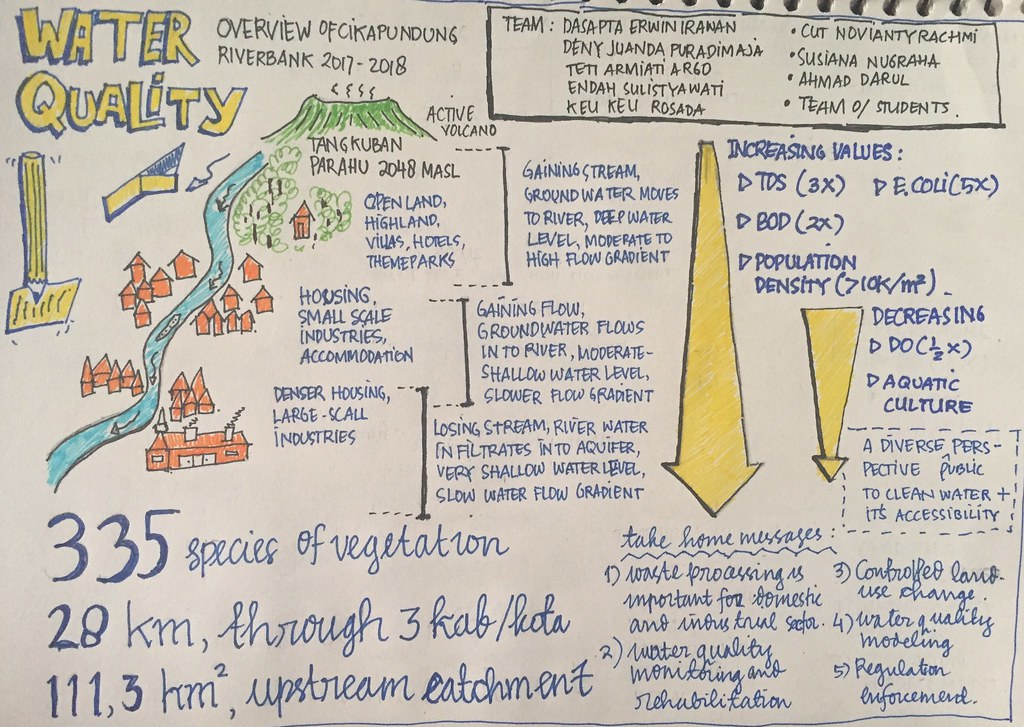 WATER
QUALITY
OVERVIEW OF CIKAPUNDUNG
RIVERBANK 2017-2018
TEAM : DASAPTA ERWIN IRAWAN
DENY JUANDA PURADIMAJA
TETI ARMIATI ARGO
ENDAH SULISTYAWATI
KEU KEU ROSADA
• CUT NOVIANTY RACHMI
• SUSIANA NUGRAHA
• AHMAD DARUL
• TEAM OF STUDENTS.
ACTIVE
VOLCANO
TANGKUBAN
PARAHU 2048 MASL
OPEN LAND,
HIGHLAND,
VILLAS, HOTELS,
THEMEPARKS
GAINING STREAM,
GROUND WATER MOVES
TO RIVER, DEEP WATER
LEVEL, MODERATE TO
HIGH FLOW GRADIENT
HOUSING,
SMALL SCALE
INDUSTRIES,
ACCOMMODATION
GAINING FLOW,
GROUNDWATER FLOWS
IN TO RIVER, MODERATE-
SHALLOW WATER LEVEL,
SLOWER FLOW GRADIENT
DENSER HOUSING,
LARGE-SCALL
INDUSTRIES
LOSING STREAM, RIVER WATER
INFILTRATES INTO AQUIFER,
VERY SHALLOW WATER LEVEL,
SLOW WATER FLOW GRADIENT
INCREASING VALUES :
▷ TDS (3X) ▷ E.COLI (5X)
▷ BOD (2X)
▷ POPULATION
DENSITY (>10K/m²).
DECREASING
▷ DO (½ X)
▷ AQUATIC
CULTURE
A DIVERSE PERS-
PECTIVE PUBLIC
TO CLEAN WATER +
ITS ACCESSIBILITY
335 species of vegetation
28 km, through 3 kab/kota
111,3 km², upstream catchment
take home messages :
1) waste processing is
important for domestic
and industrial sector.
2) water quality
monitoring and
rehabilitation
3) Controlled land-
use change.
4) water quality
modeling
5) Regulation
enforcement.